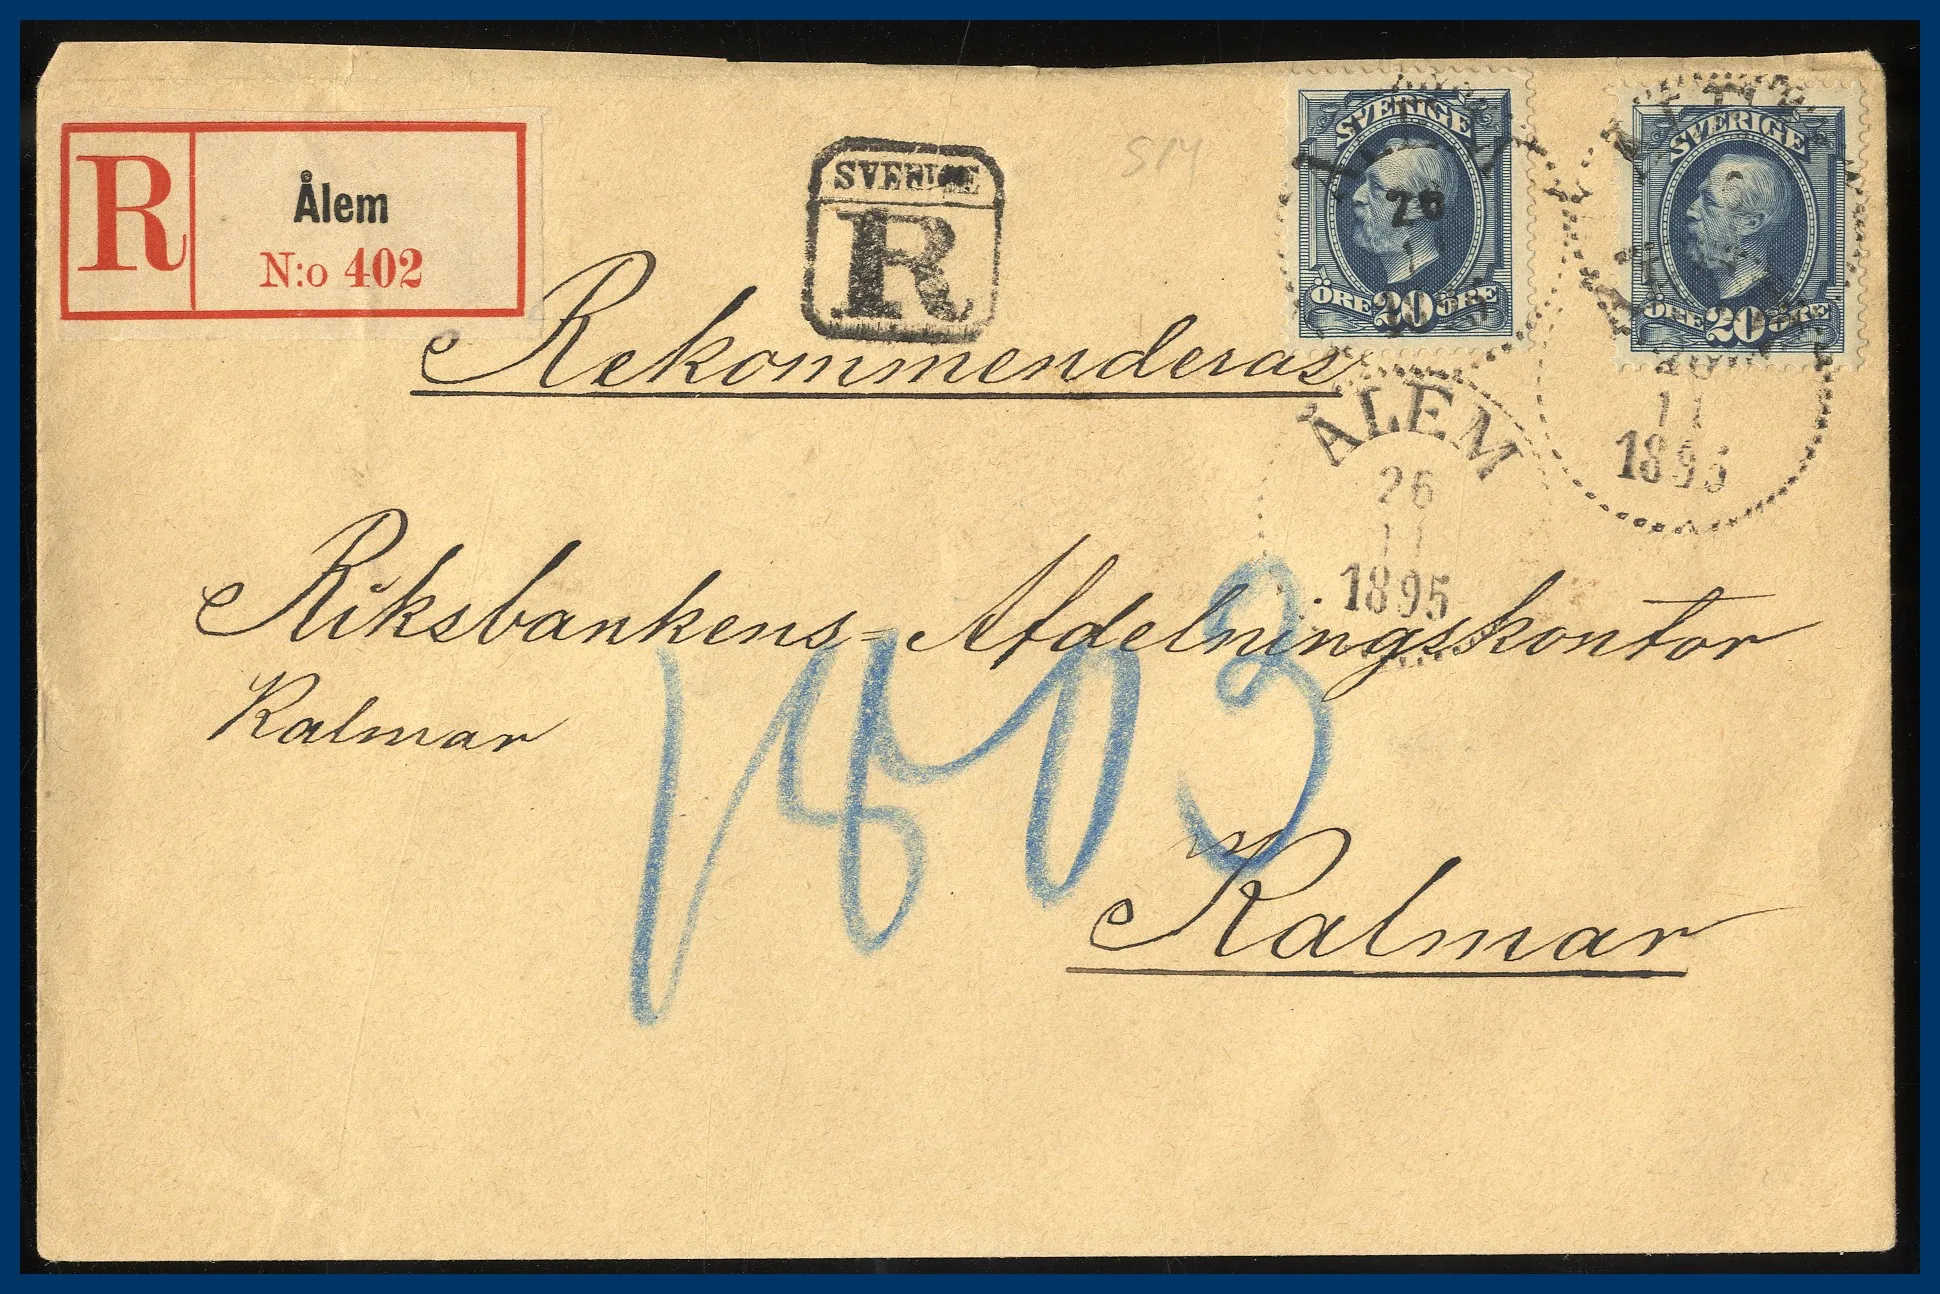 R
Ålem
N:o 402
SVERIGE
R
SM
SVERIGE
ÖRE 20 ÖRE
26
SVERIGE
ÖRE 20 ÖRE
11
1895
Rekommenderas
ÅLEM
26
11
1895
Riksbankens=Afdelningskontor
Kalmar
1803
Kalmar